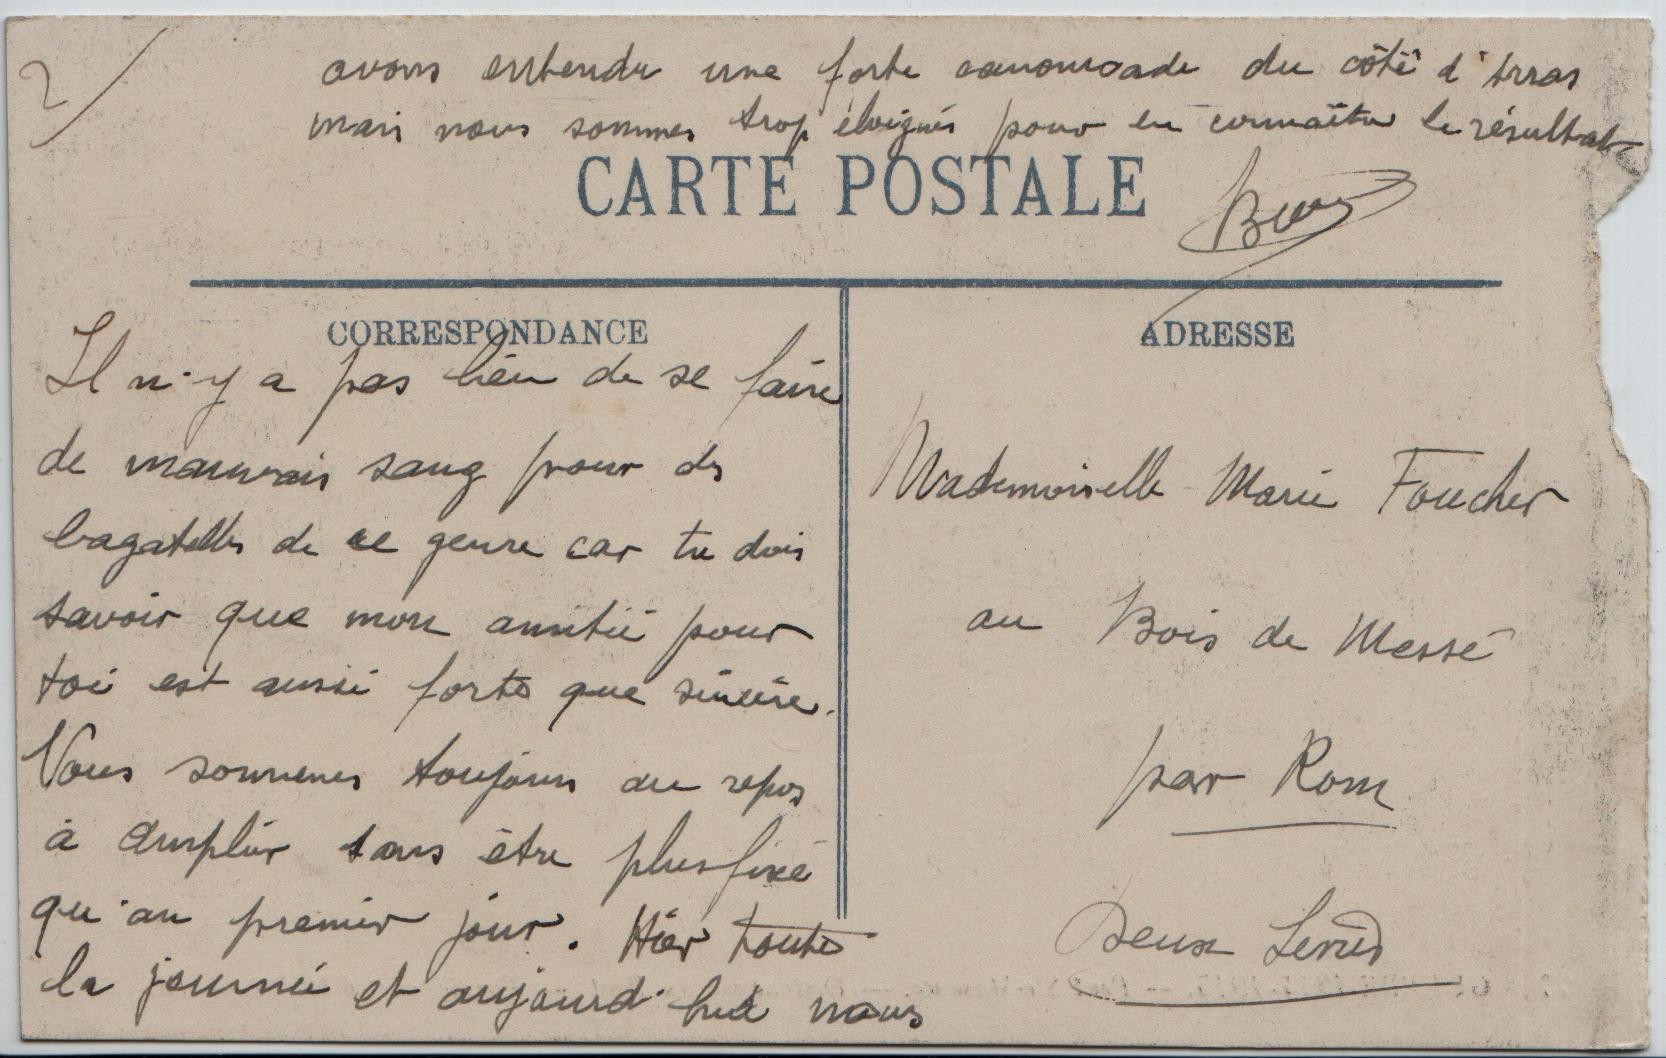 2/
avons entendu une forte canonnade du côté d'Arras
mais nous sommes trop éloignés pour en connaître le résultat
CARTE POSTALE
CORRESPONDANCE
ADRESSE
Il n'y a pas lieu de se faire
de mauvais sang pour des
bagatelles de ce genre car tu dois
savoir que mon amitié pour
toi est aussi forte que sincère.
Nous sommes toujours au repos
à Amplier sans être plus fixé
qu'au premier jour. Hier toute
la journée et aujourd'hui nous
Mademoiselle Marie Foucher
au Bois de Messé
par Rom
Deux Sèvres